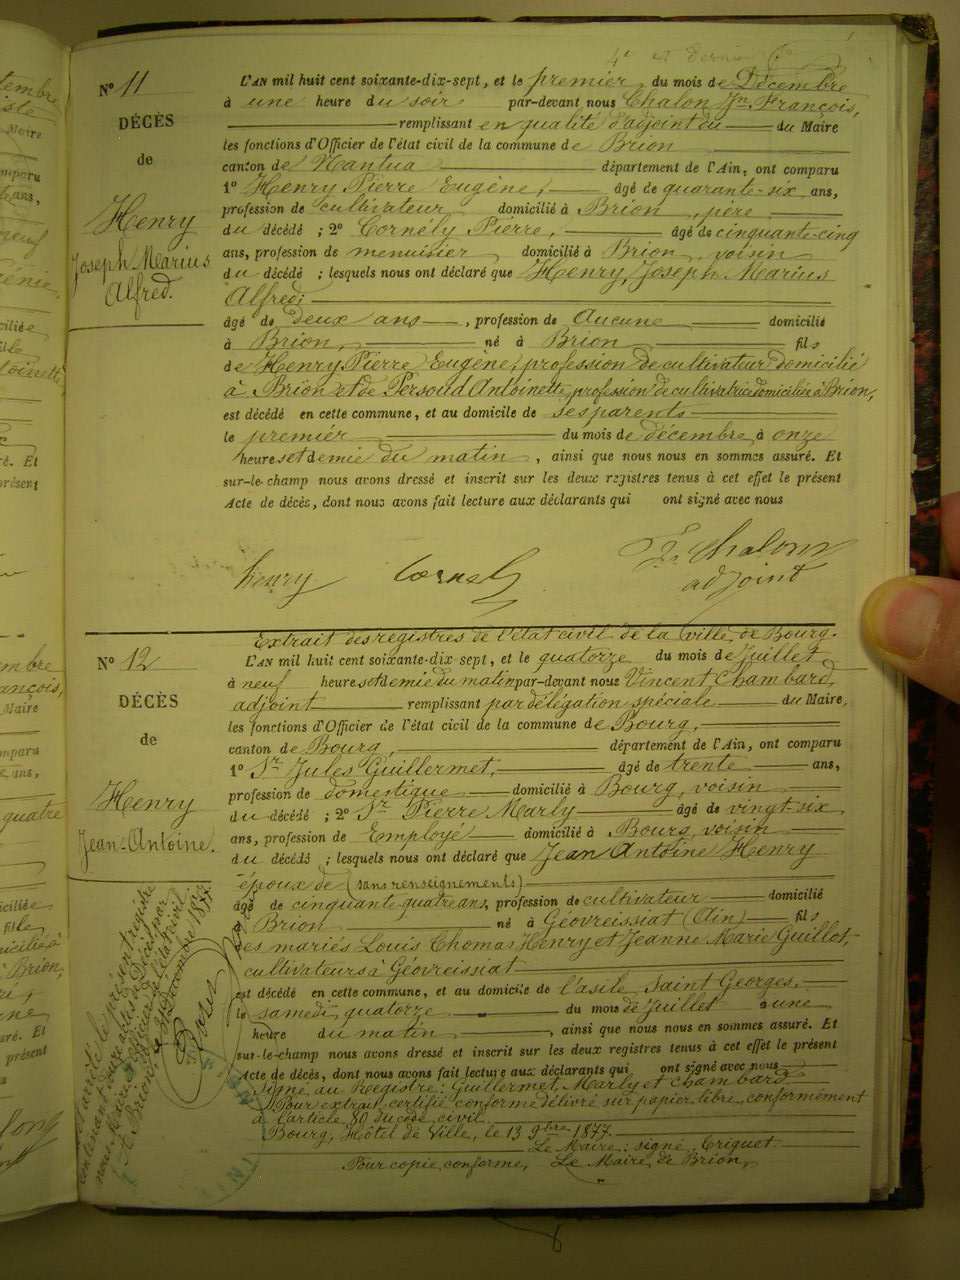 4e et dernier
N° 11
DÉCÈS
de
Henry
Joseph Marius
Alfred.
L'AN mil huit cent soixante-dix-sept, et le premier du mois de Décembre
à une heure du soir par-devant nous Chalon Jn François,
remplissant en qualité d'adjoint du Maire
les fonctions d'Officier de l'état civil de la commune de Brion
canton de Nantua département de l'Ain, ont comparu
1° Henry Pierre Eugène, âgé de quarante-six ans,
profession de cultivateur domicilié à Brion, père
du décédé ; 2° Cornély Pierre, âgé de cinquante-cinq
ans, profession de menuisier domicilié à Brion voisin
du décédé ; lesquels nous ont déclaré que Henry, Joseph Marius
Alfred;
âgé de deux ans, profession de Aucune domicilié
à Brion, né à Brion fils
de Henry Pierre Eugène, profession de cultivateur domicilié
à Brion et de Persoud Antoinette, profession de cultivatrice domiciliée à Brion,
est décédé en cette commune, et au domicile de ses parents
le premier du mois de décembre à onze
heures et demie du matin, ainsi que nous nous en sommes assuré. Et
sur-le-champ nous avons dressé et inscrit sur les deux registres tenus à cet effet le présent
Acte de décès, dont nous avons fait lecture aux déclarants qui ont signé avec nous
henry Cornely Fs Chalon
adjoint
Extrait des registres de l'état civil de la ville de Bourg.
N° 12
DÉCÈS
de
Henry
Jean-Antoine.
L'AN mil huit cent soixante-dix sept, et le quatorze du mois de Juillet
à neuf heures et demie du matin par-devant nous Vincent Chambard,
adjoint remplissant par délégation spéciale du Maire,
les fonctions d'Officier de l'état civil de la commune de Bourg,
canton de Bourg, département de l'Ain, ont comparu
1° Sr Jules Guillermet, âgé de trente ans,
profession de domestique domicilié à Bourg, voisin
du décédé ; 2° Sr Pierre Marly âgé de vingt-six
ans, profession de Employé domicilié à Bourg, voisin
du décédé ; lesquels nous ont déclaré que Jean Antoine Henry
époux de (sans renseignements)
âgé de cinquante quatre ans, profession de cultivateur domicilié
à Brion né à Géovreissiat (Ain) fils
des mariés Louis Thomas Henry et Jeanne Marie Guillot,
cultivateurs à Géovreissiat
est décédé en cette commune, et au domicile de l'asile Saint Georges,
le samedi quatorze du mois de Juillet à une
heure du matin, ainsi que nous nous en sommes assuré. Et
sur-le-champ nous avons dressé et inscrit sur les deux registres tenus à cet effet le présent
Acte de décès, dont nous avons fait lecture aux déclarants qui ont signé avec nous
Signé au Registre: Guillermet, Marly et Chambard
Pour extrait certifié conforme délivré sur papier libre, conformément
à l'article 80 du code civil.
Bourg, Hôtel de Ville, le 13 9bre 1877.
Le Maire: signé, Triquet
Pour copie conforme, Le Maire de Brion,
arrêté le présent registre
contenant douze actes de Décès par
nous, Maire officier de l'état civil
à Brion, le 31 Décembre 1877.